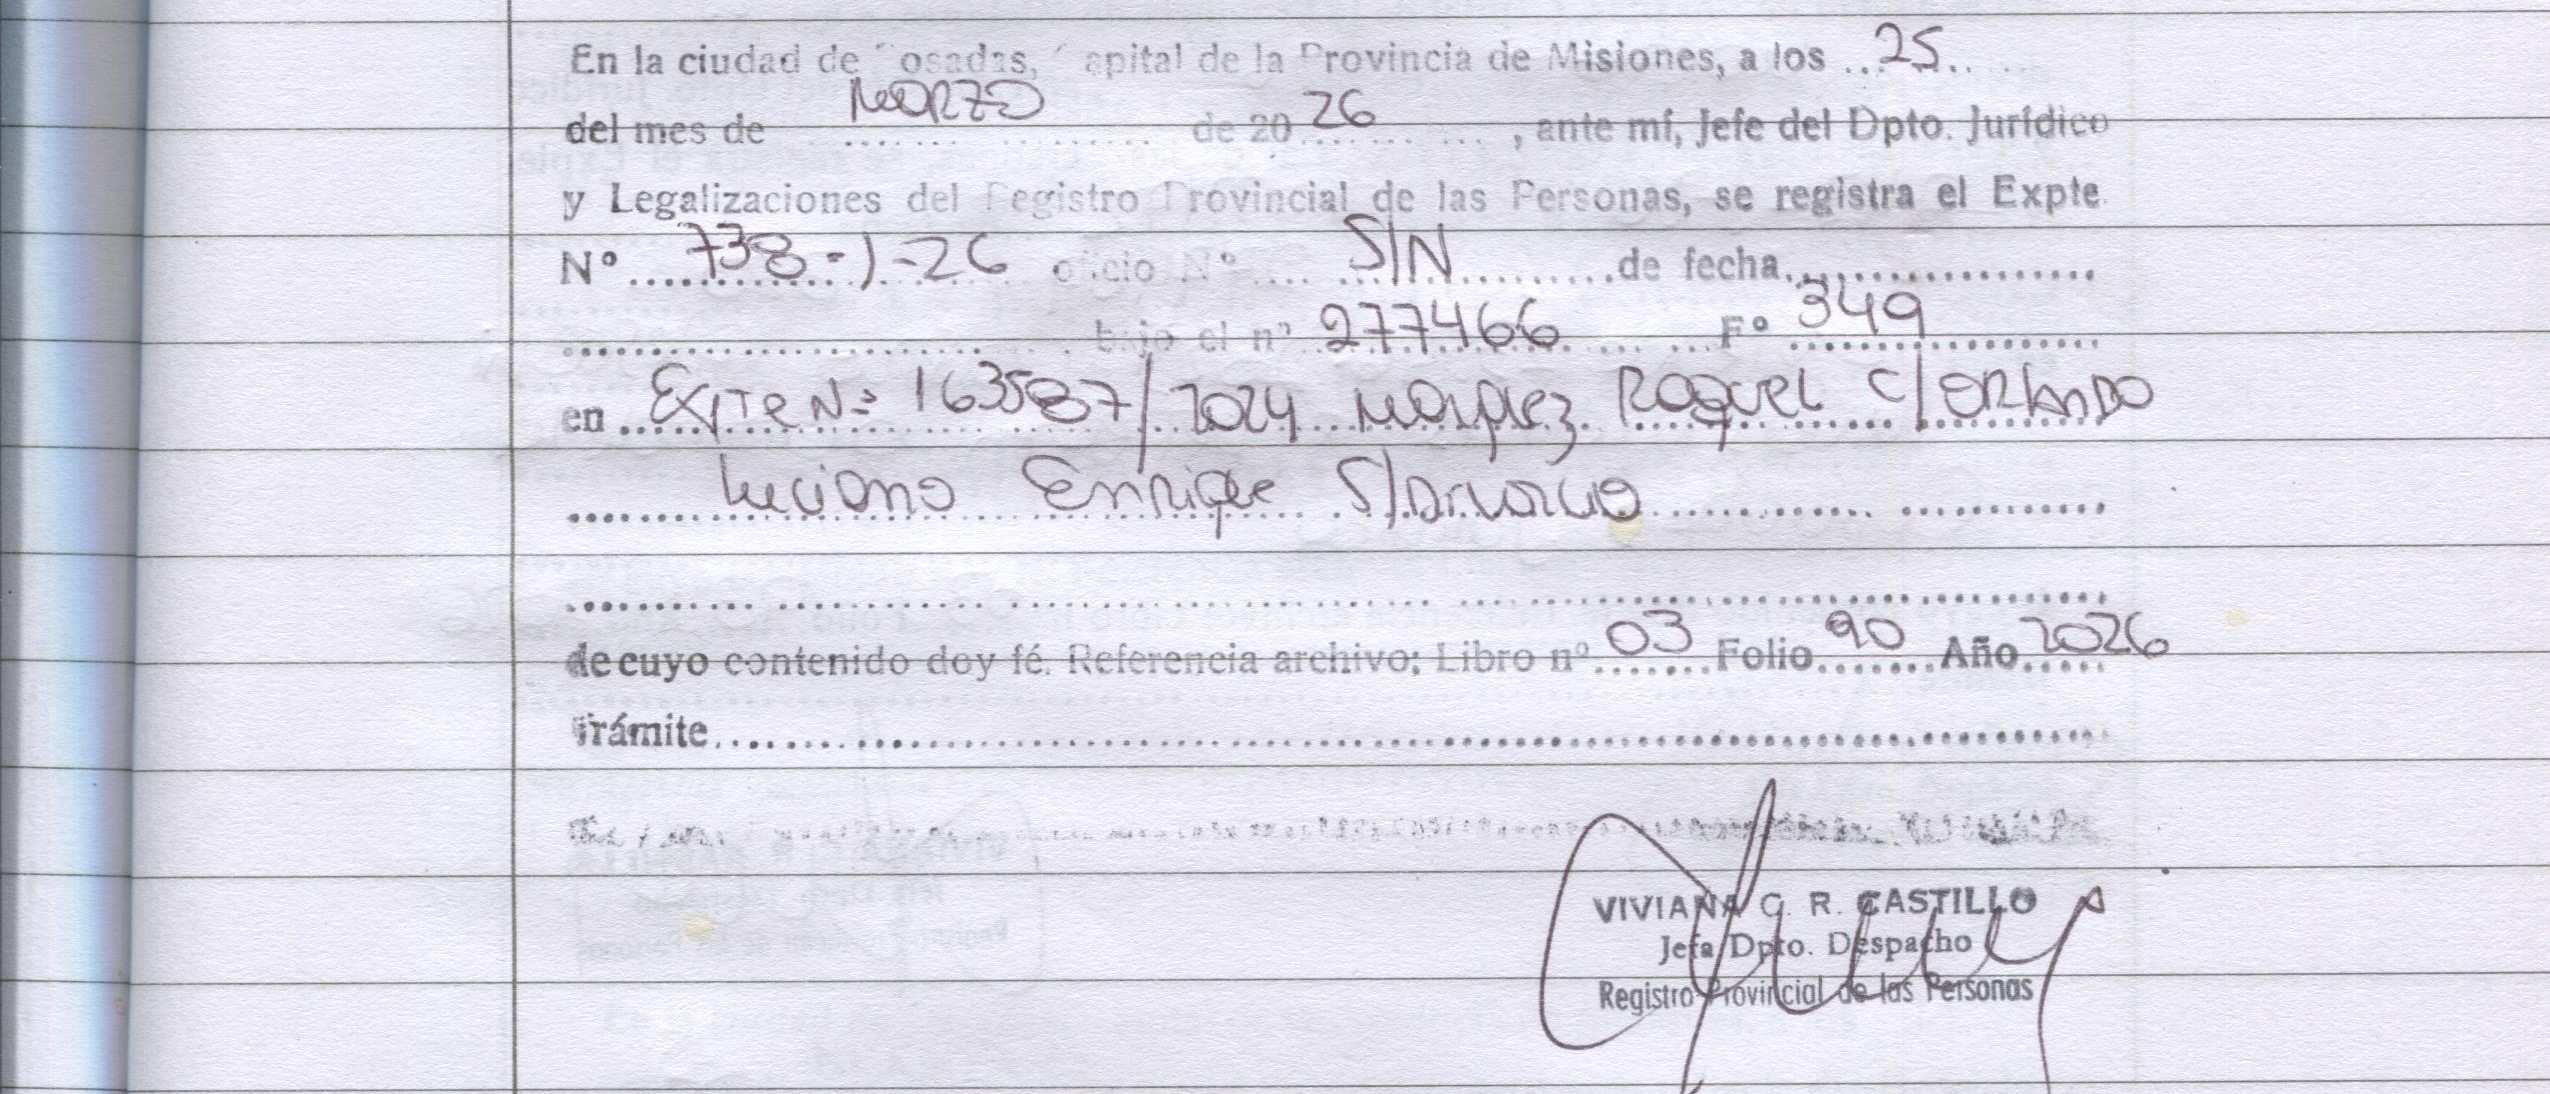 En la ciudad de Posadas, Capital de la Provincia de Misiones, a los ...25...
del mes de MARZO de 20 26, ante mí, Jefe del Dpto. Jurídico
y Legalizaciones del Registro Provincial de las Personas, se registra el Expte.
Nº 738-J-26 oficio Nº S/N de fecha
bajo el nº 277466 Fº 349
en Expte Nº 163587/2024 Marquez Raquel C/ ORLANDO
Luciano Enrique S/Divorcio
de cuyo contenido doy fé. Referencia archivo; Libro nº 03 Folio 90 Año 2026
Trámite
VIVIANA C. R. CASTILLO
Jefa Dpto. Despacho
Registro Provincial de las Personas